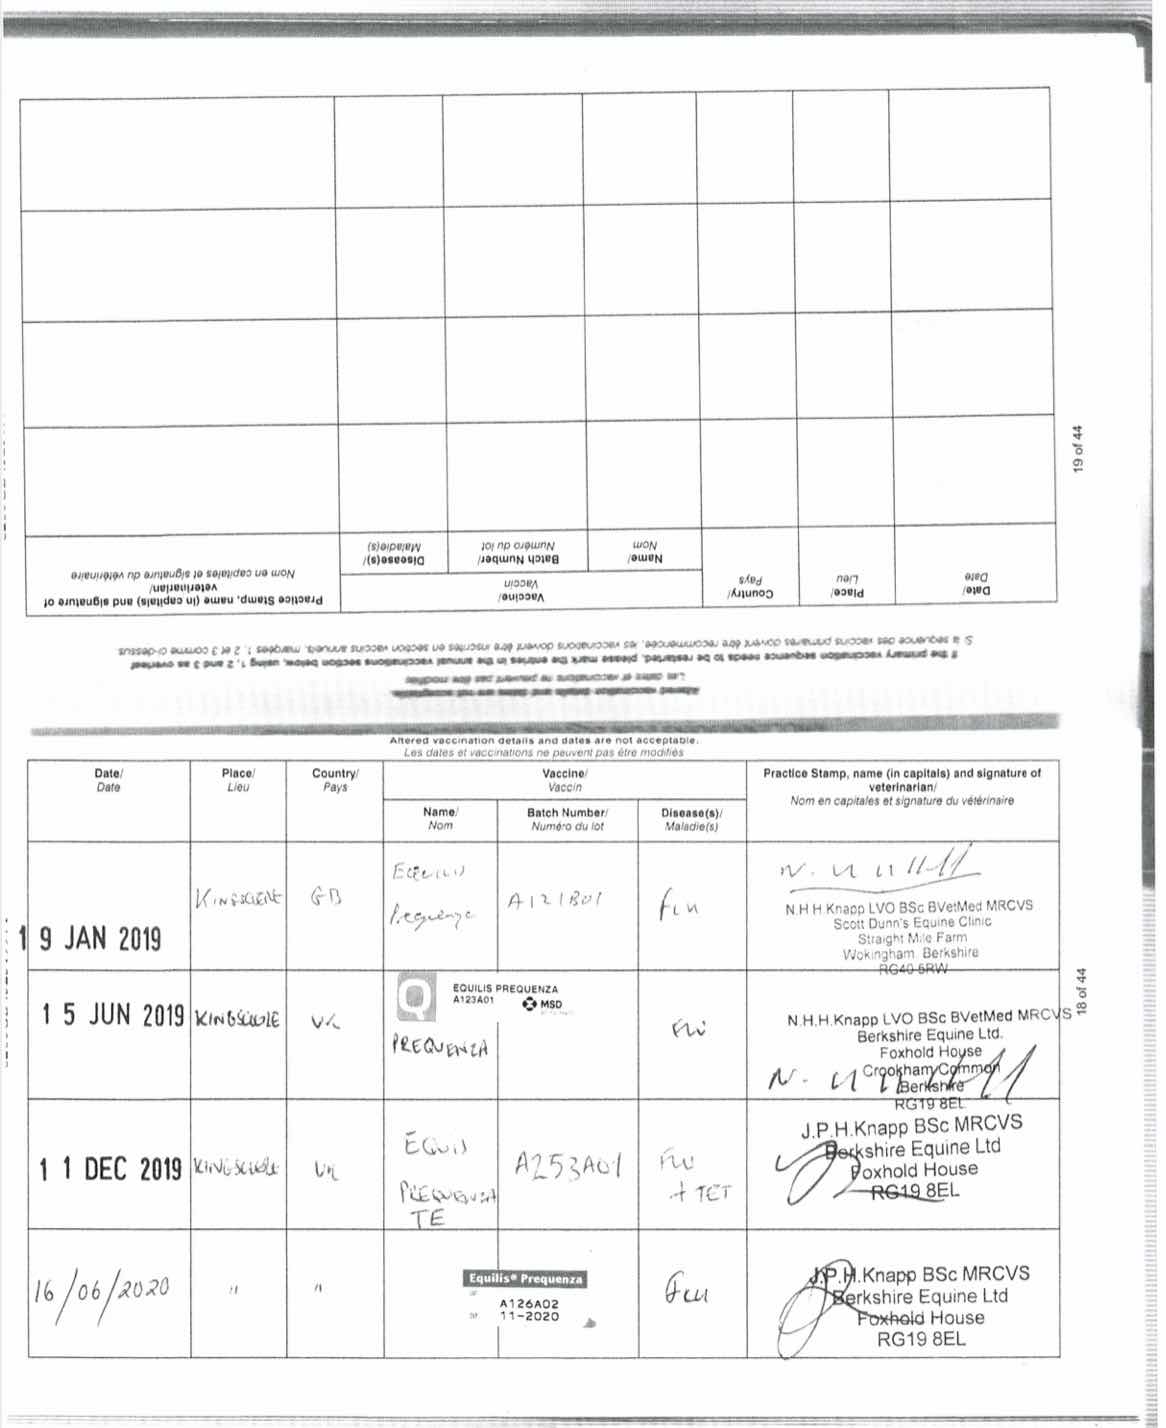 Practice Stamp, name (in capitals) and signature of
veterinarian/
Nom en capitales et signature du vétérinaire
Vaccine/
Vaccin
Disease(s)/
Maladie(s)
Batch Number/
Numéro du lot
Name/
Nom
Country/
Pays
Place/
Lieu
Date/
Date
If the primary vaccination sequence needs to be restarted, please mark the entries in the annual vaccinations section below, using 1, 2 and 3 as overleaf
S. la sequence des vaccins primaires doivent être recommencée, les vaccinations doivent être inscrites en section vaccins annuels, marqées 1, 2 et 3 comme ci-dessus
Altered vaccination details and dates are not acceptable
Les dates et vaccinations ne peuvent pas être modifiés
19 of 44
Altered vaccination details and dates are not acceptable.
Les dates et vaccinations ne peuvent pas étre modifiés
Date/
Date
Place/
Lieu
Country/
Pays
Vaccine/
Vaccin
Practice Stamp, name (in capitals) and signature of
veterinarian/
Nom en capitales et signature du vétérinaire
Name/
Nom
Batch Number/
Numéro du lot
Disease(s)/
Maladie(s)
19 JAN 2019
GB
Prequenza
A121B01
flu
N.H.H.Knapp LVO BSc BVetMed MRCVS
Scott Dunn's Equine Clinic
Straight Mile Farm
Wokingham Berkshire
RG40 5RW
15 JUN 2019
KINGSCLERE
UK
EQUILIS PREQUENZA
A123A01
MSD
PREQUENZA
FLU
N.H.H.Knapp LVO BSc BVetMed MRCVS
Berkshire Equine Ltd.
Foxhold House
Crookham Common
Berkshire
RG19 8EL
18 of 44
11 DEC 2019
KINGSCLERE
UK
PREQUENZA
TE
A253A01
FLU
+ TET
J.P.H.Knapp BSc MRCVS
Berkshire Equine Ltd
Foxhold House
RG19 8EL
16/06/2020
"
"
Equilis® Prequenza
A126A02
11-2020
Flu
J.P.H.Knapp BSc MRCVS
Berkshire Equine Ltd
Foxhold House
RG19 8EL